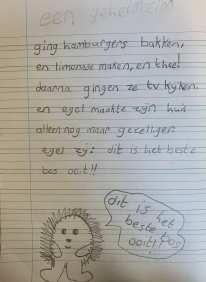 een geheim
ging hamburgers bakken,
en limonade maken, en thee!
daarna gingen ze tv kijken.
en egel maakte zijn huis
alleen nog maar gezelliger
egel zei: dit is het beste
bos ooit!!
dit is het
beste bos
ooit!!